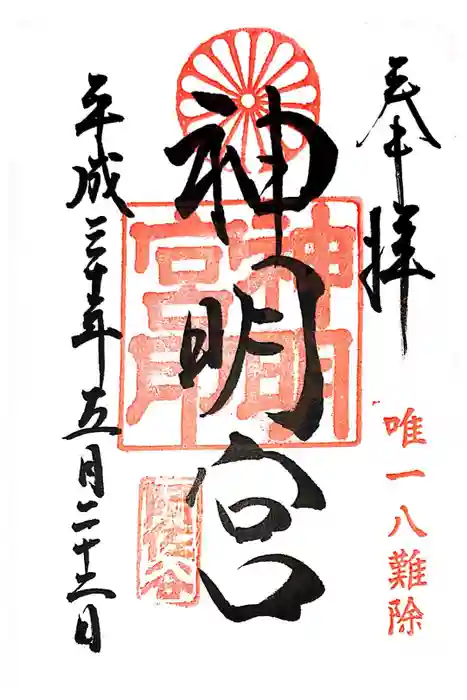 奉拝
唯一八難除
神明宮
神明宮印
阿佐谷
平成三十年五月二十二日